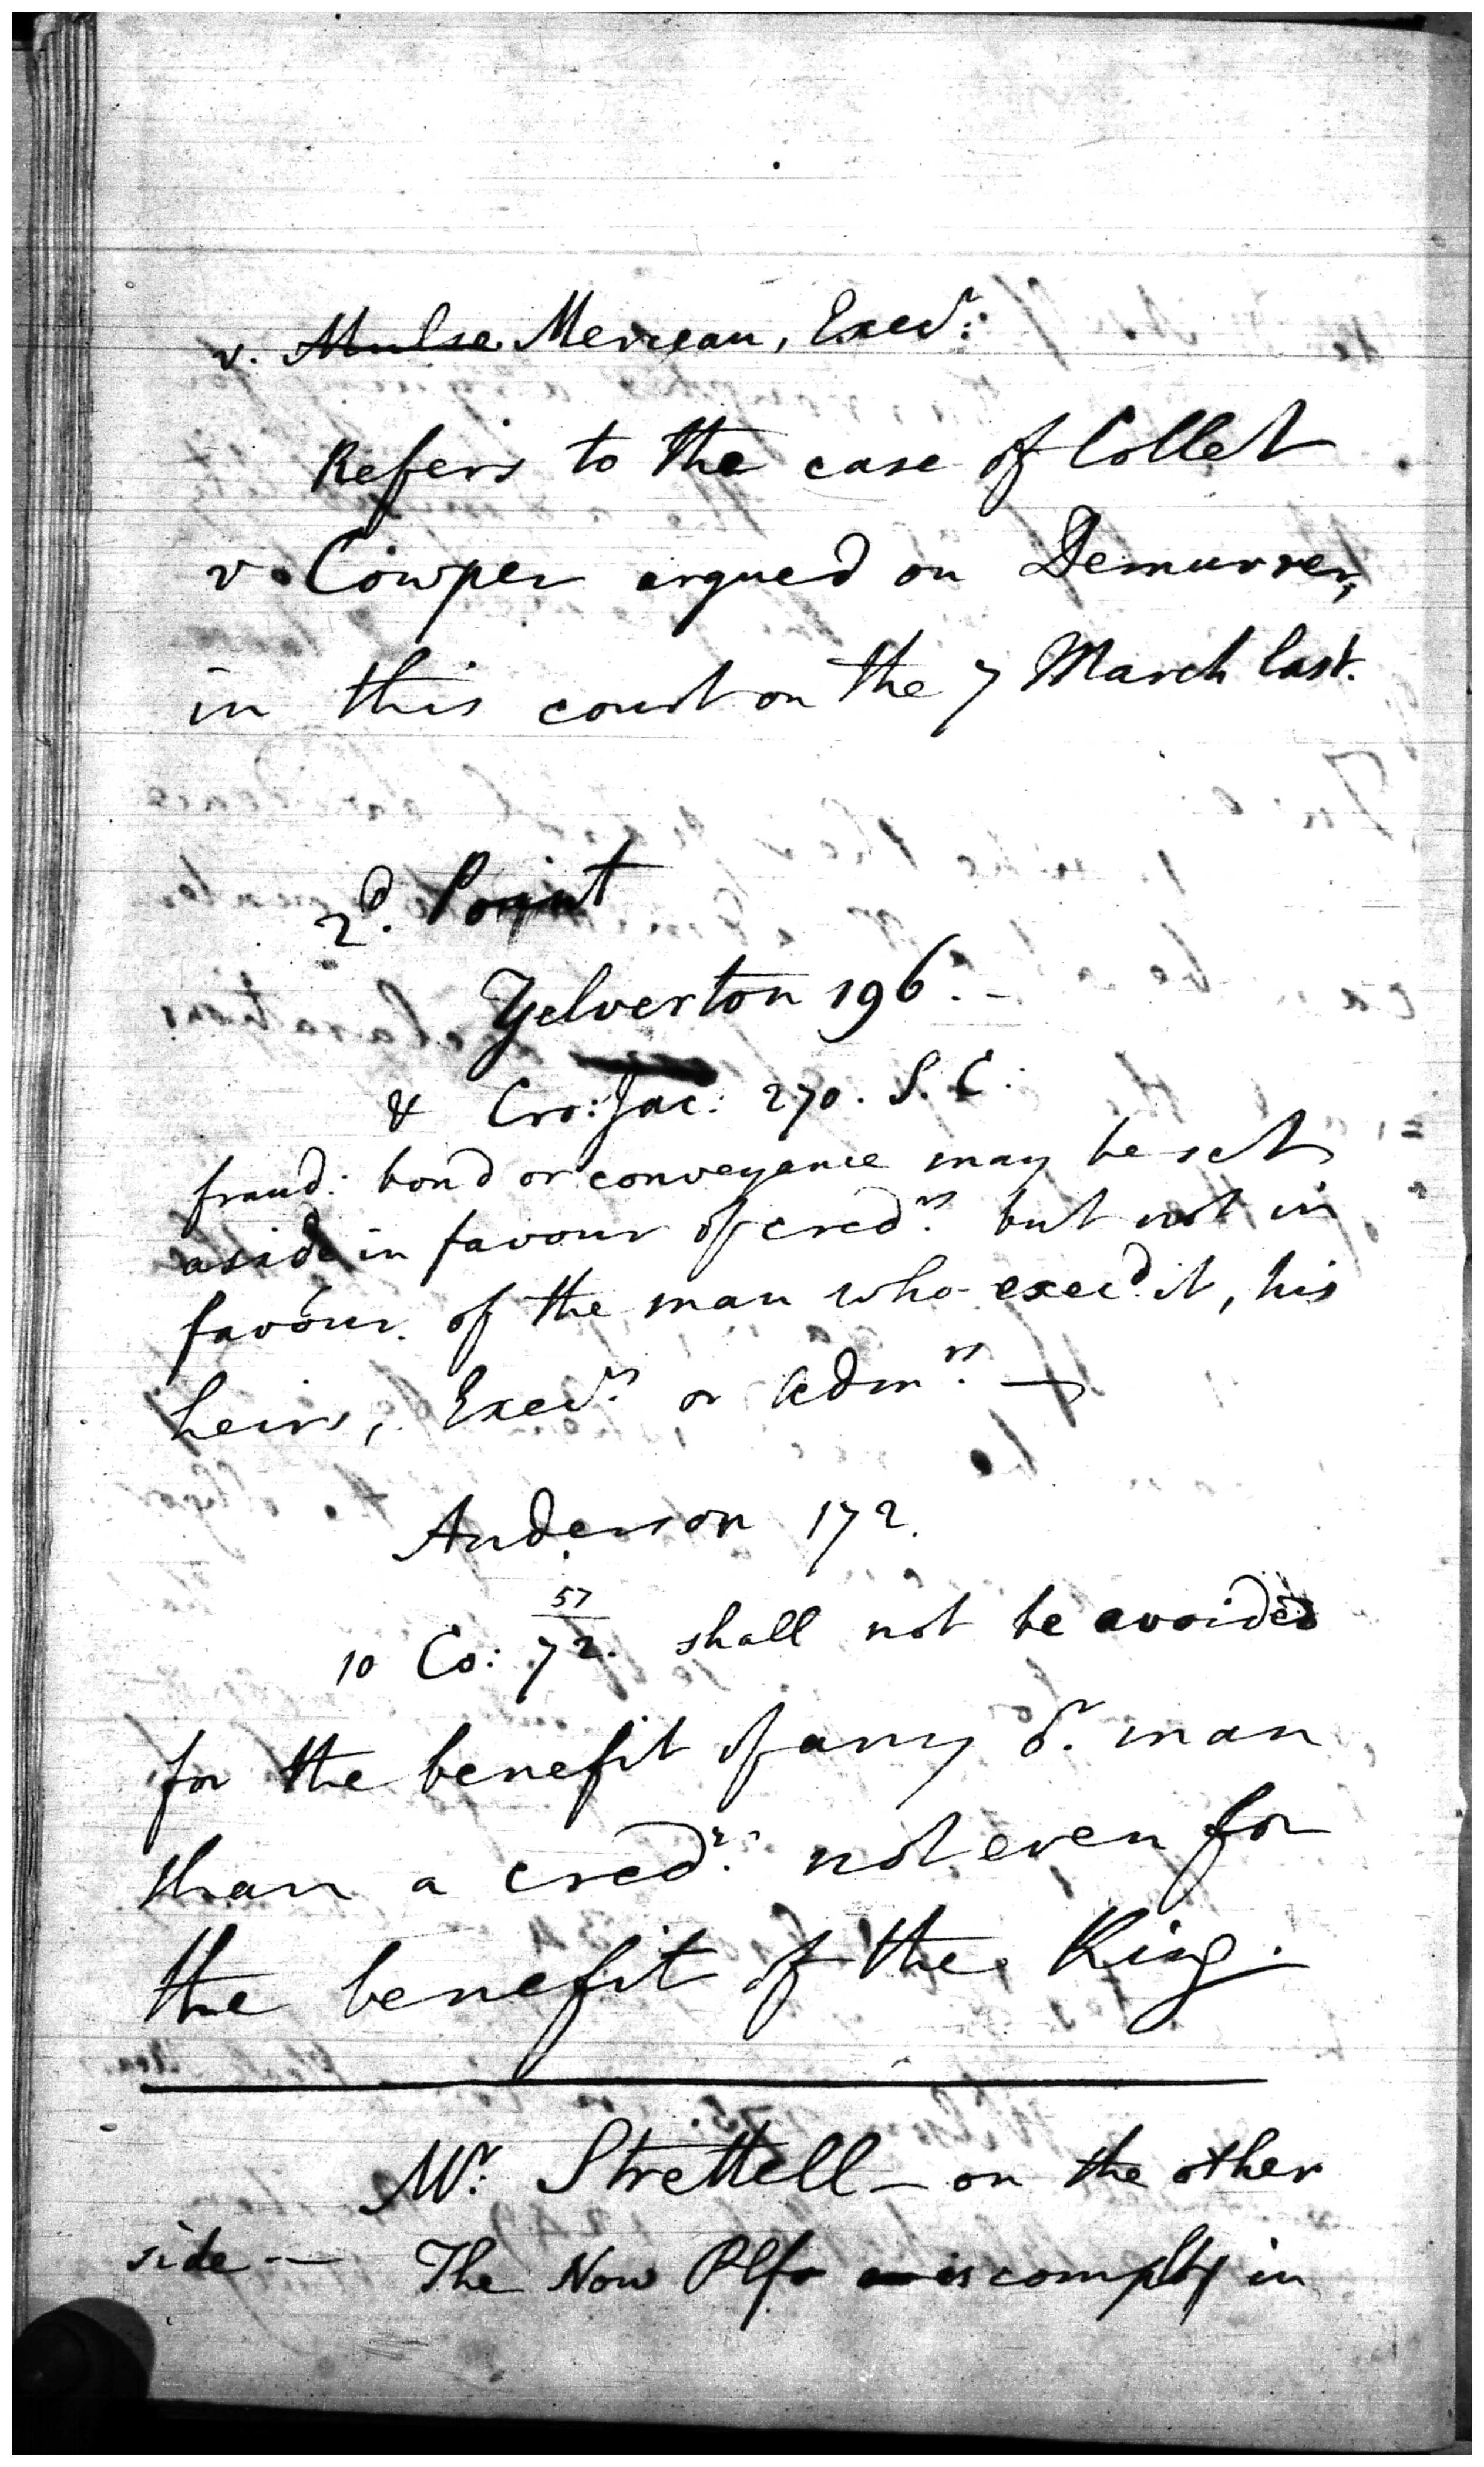 v. Mulse Mercean, Execr:
Refers to the case of Collet
v. Cowper argued on Demurrer,
in this court on the 7 March last.
2d. Point
Yelverton 196. -
& Cro: Jac: 270. S. C.
fraud: bond or conveyance may be set
aside in favour of credrs. but not in
favour. of the man who execd. it, his
heirs, Execrs. or Admrs. —
Anderson 172.
57
10 Co: 72. shall not be avoided
for the benefit of any or. man
than a credr. not even for
the benefit of the King.
Mr. Strettell - on the other
side — The Now Plfs is in